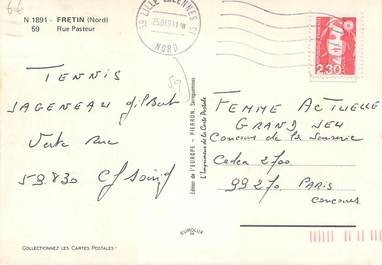 N 1891 - FRETIN (Nord)
59 Rue Pasteur
59 LILLE
NORD
2,30
TENNIS
JAGENEAU Gilbert
Verte Rue
59.830
FEMME ACTUELLE
GRAND JEU
Concours de la
Cedex 2700
99270 PARIS
CONCOURS
Edition de l'EUROPE - PIERRON, Sarreguemines
L'Imprimeur de la Carte Postale
COLLECTIONNEZ LES CARTES POSTALES
EUROLUX